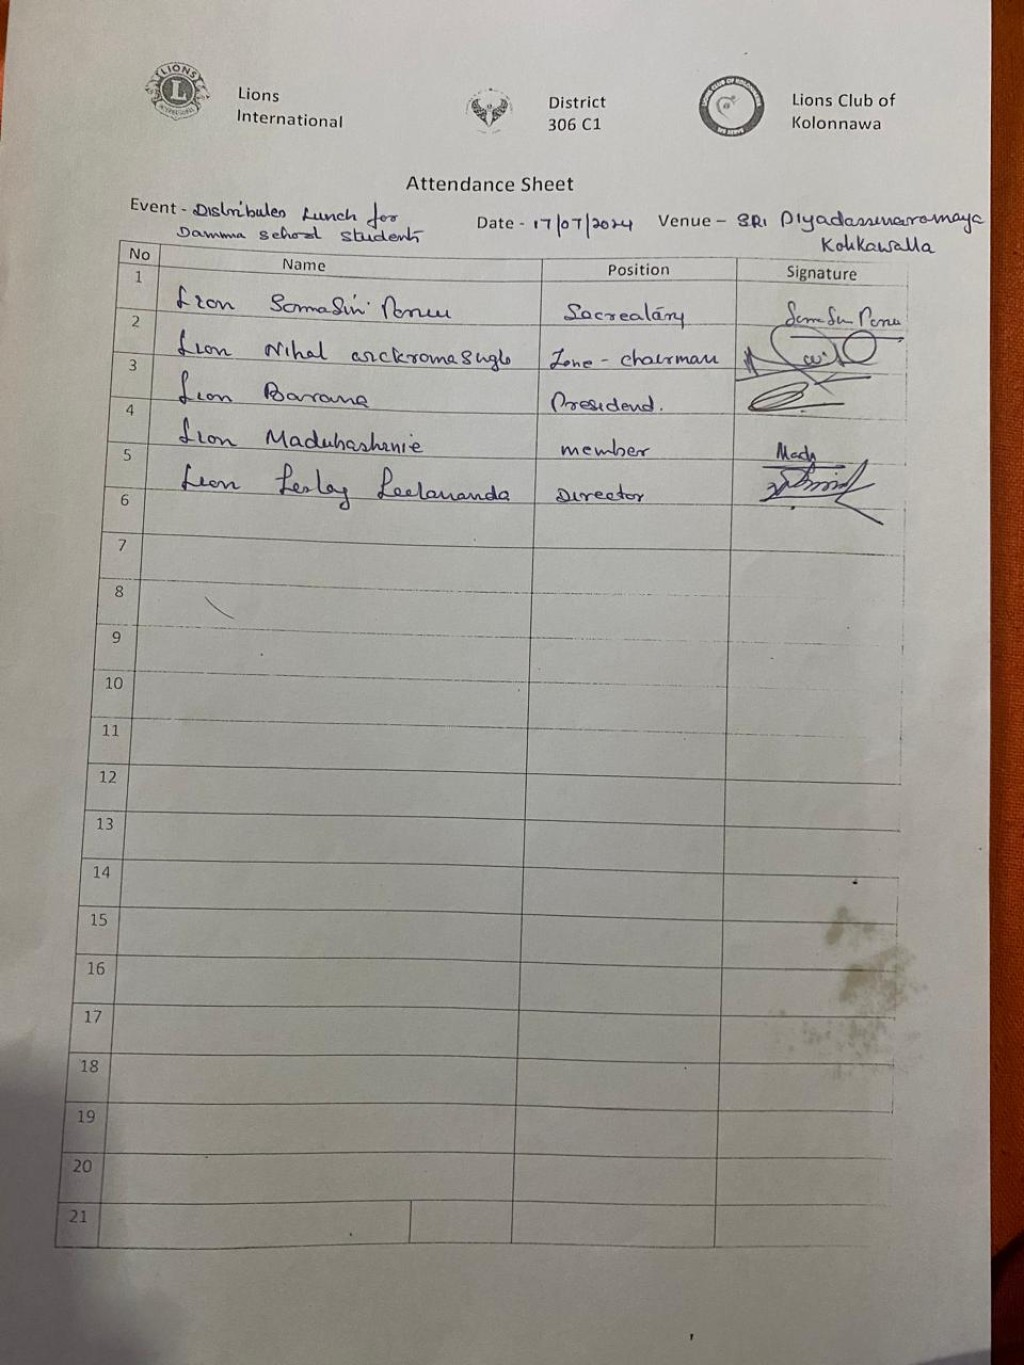 LIONS
L
INTERNATIONAL
Lions
International
District
306 C1
LIONS CLUB OF KOLONNAWA
WE SERVE
Lions Club of
Kolonnawa
Attendance Sheet
Event - Distributes Lunch for
Damma school students
Date - 17/07/2024
Venue - SRI Piyadassinaramaya
Kotikawatta
No Name Position Signature
1 Lion Somasiri Perera Socrealary
2 Lion Nihal Zone - chairman
3 Lion Barana Presidend.
4 Lion Maduhashanie member Mady
5 Lion Lesley Leelananda Director
6
7
8
9
10
11
12
13
14
15
16
17
18
19
20
21